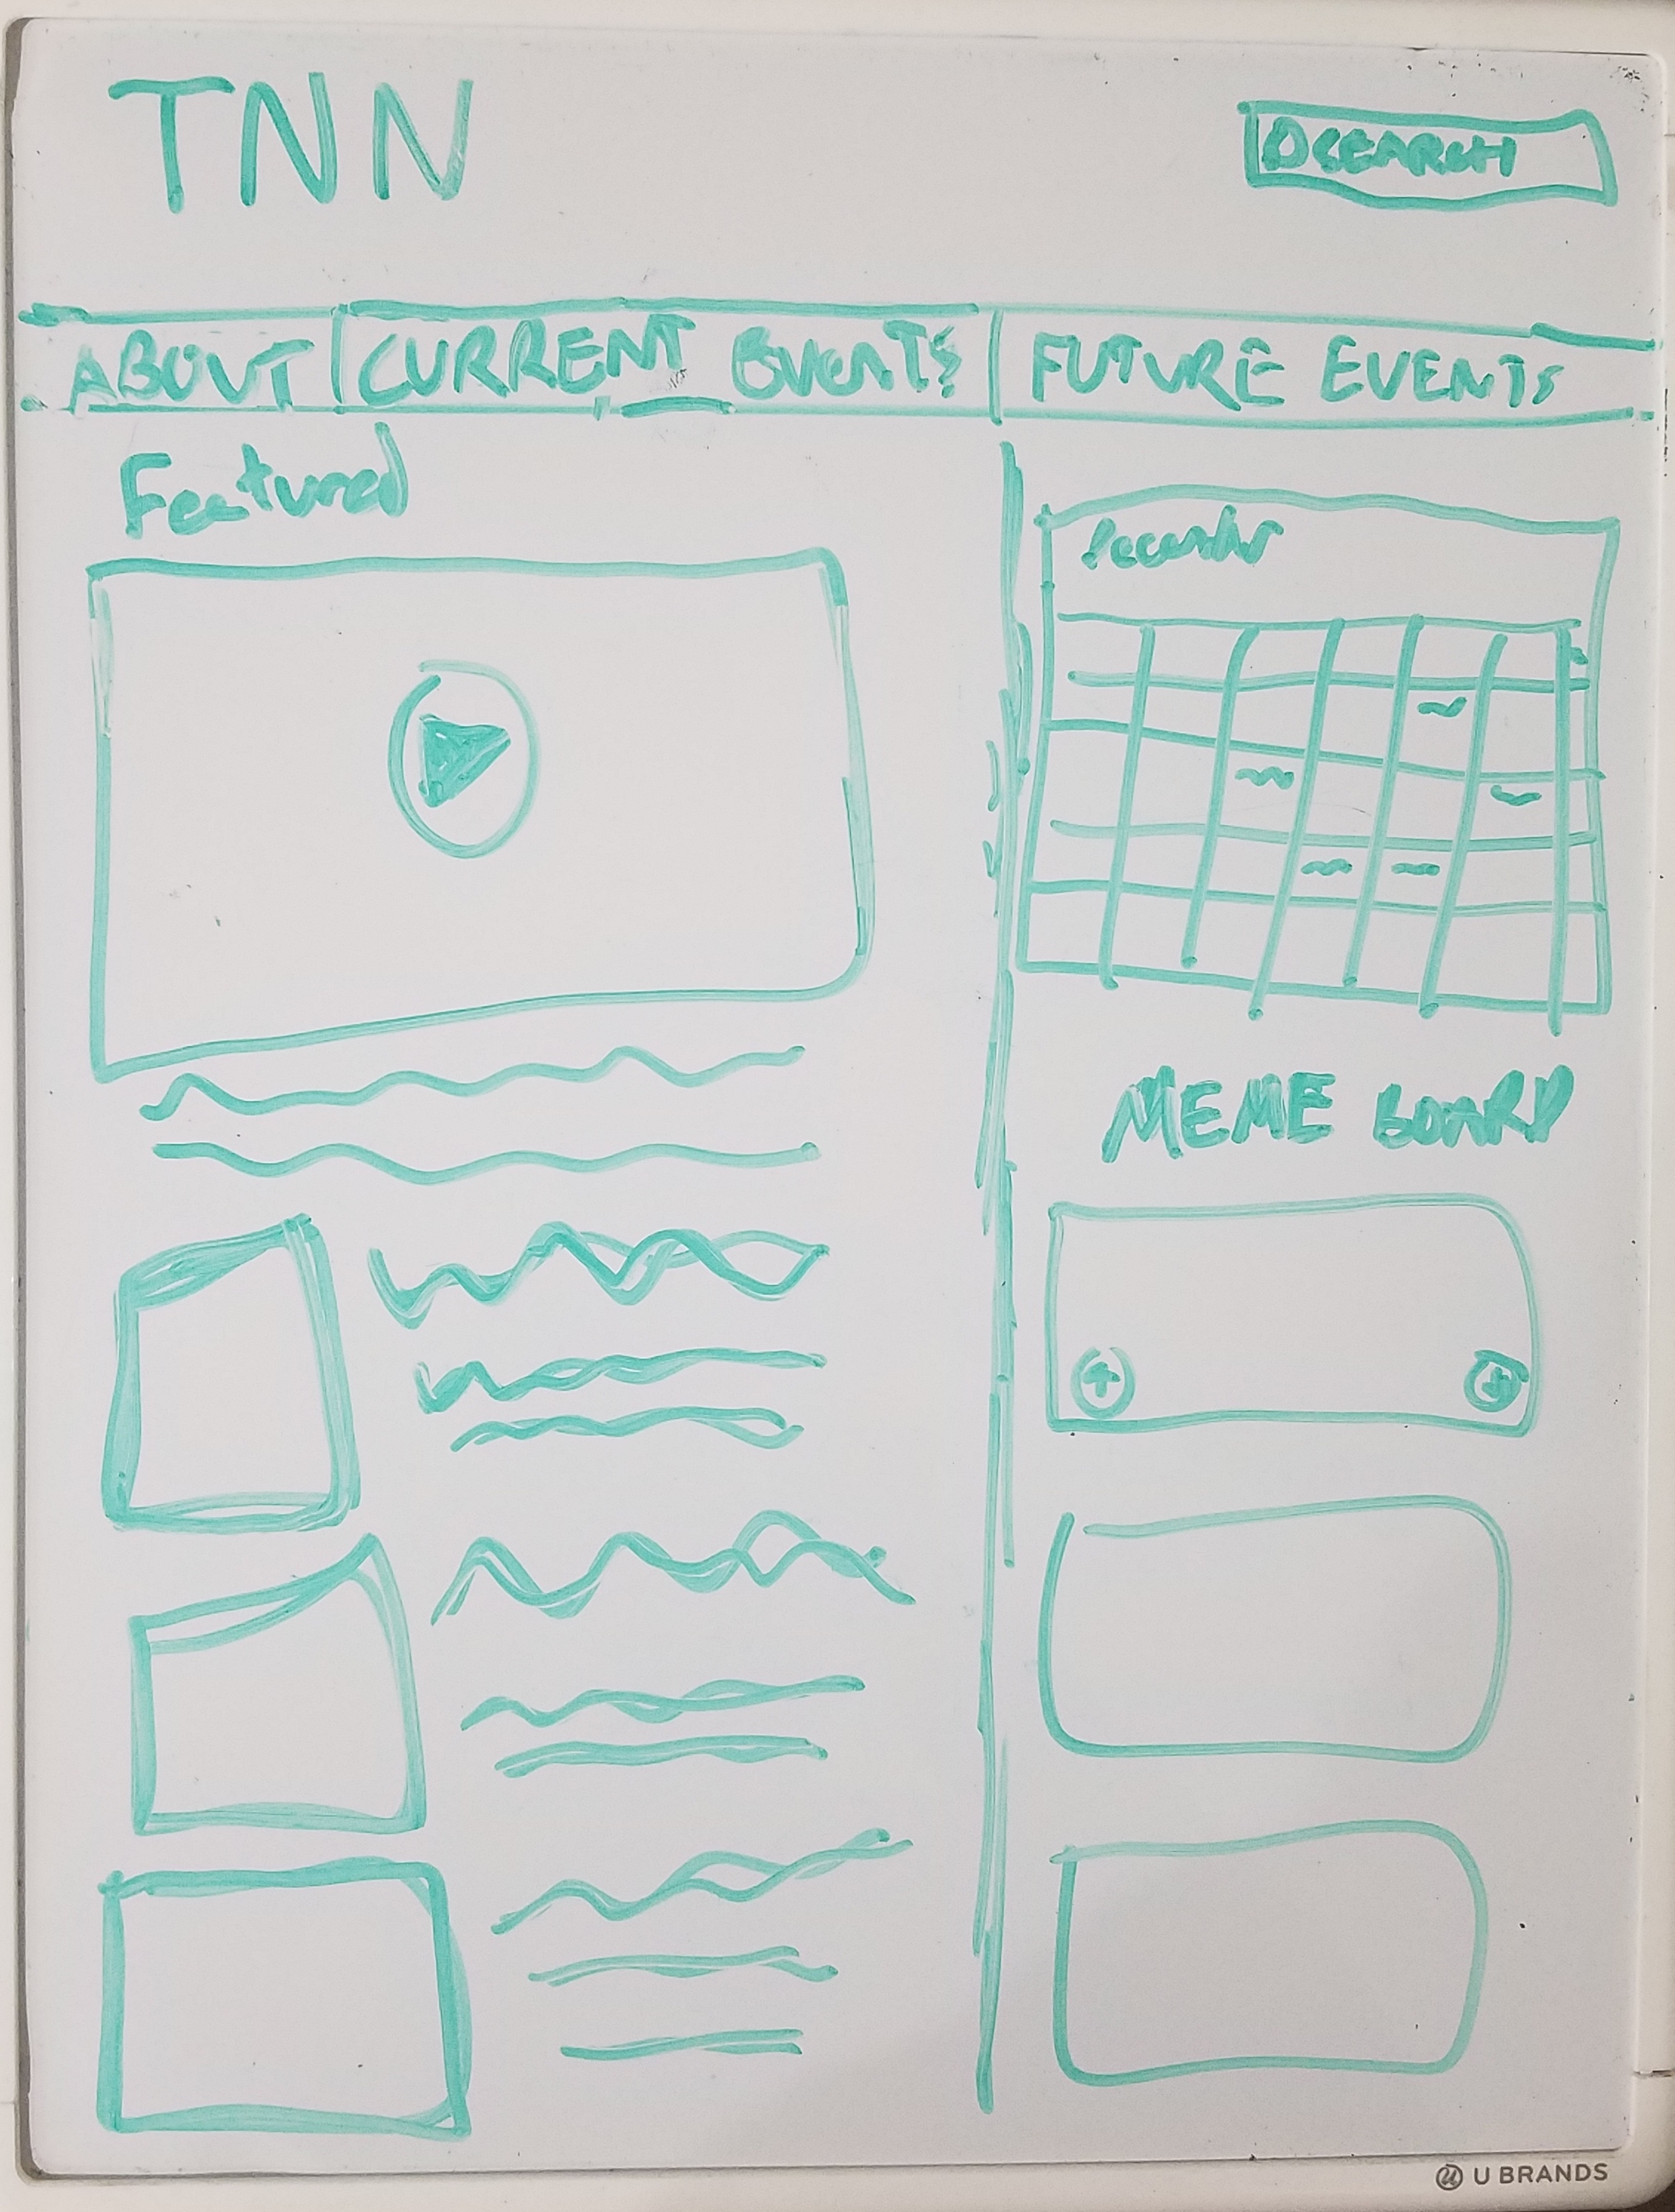 TNN
SEARCH
ABOUT CURRENT EVENTS FUTURE EVENTS
Featured
December
MEME BOARD
U BRANDS